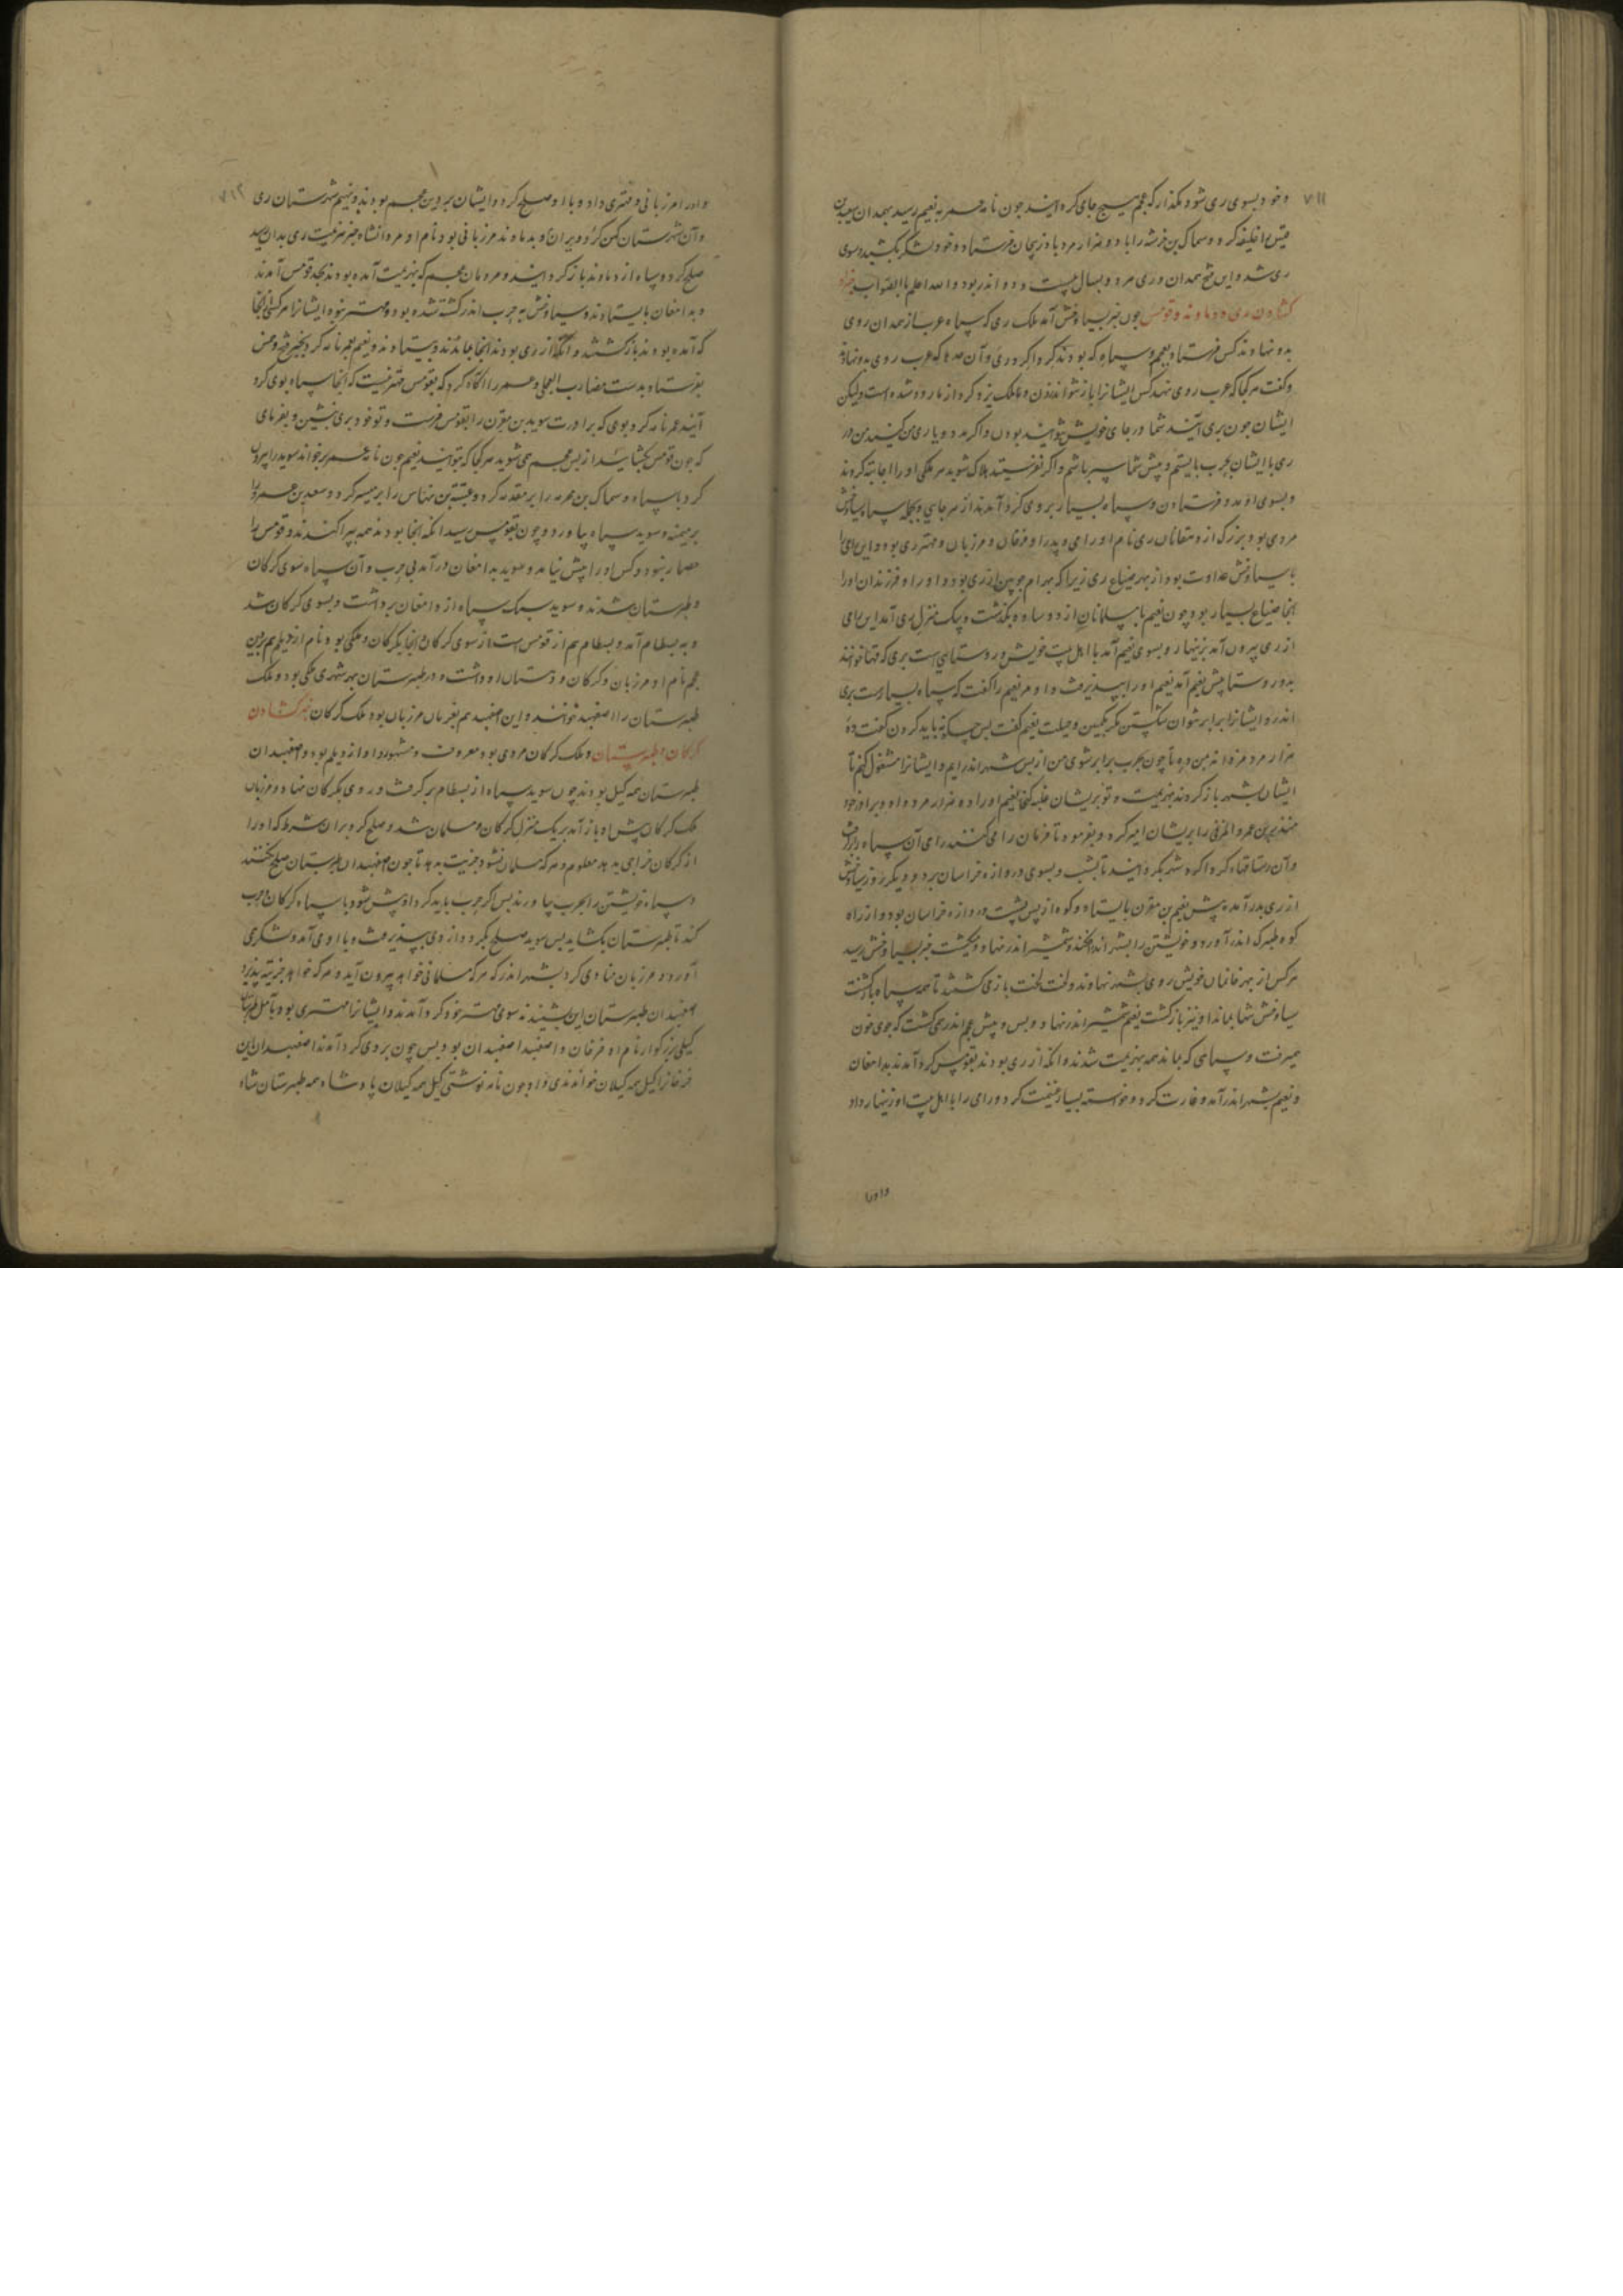 ۷۱۱
و خود بسوی ری شو و مگذار که عجم هیچ جای گرد آیند چون نامه عمر به نعیم رسید بهمدان یزید بن
قیس را خلیفه کرد و سماک بن خرشه را با دو هزار مرد باذربیجان فرستاد و خود لشکر بکشید و سوی
ری شد و این فتح همدان و ری مرد و بسال بیست و دو اندر بود والله اعلم بالصواب خبر
کشادن ری و دماوند و قومس چون خبر بسیاوخش آمد ملک ری که سپاه عرب از همدان روی
بدو نهادند کس فرستاد بعجم و سپاه که بودند گرداگرد ری و آن حدها که عرب روی بدو نهاد
و گفت هر کجا که عرب روی نهند کس ایشانرا باز نتواند زدن و ملک یزدگرد از ما دور شده است ولیکن
ایشان چون بری آیند شما در جای خویش نتوانید بودن و اگر مدد و یاری من کنید من در
ری با ایشان بحرب بایستم و پیش شما سپر باشم و اگر نفرستید هلاک شوید هر ملکی او را اجابت کردند
و بسوی او مدد فرستادن و سپاه بسیار بر وی گرد آمدند از هر جای و بجمله سپاه سیاوخش
مردی بود بزرگ از دهقانان ری نام او رامی و پدر او فرقان و مرزبان و مهتر ری بود و این رامی را
با سیاوخش عداوت بود از بهر ضیاع ری زیرا که بهرام جوبین از ری بود و او را و فرزندان او را
آنجا ضیاع بسیار بود چون نعیم با مسلمانان از دو ساوه بگذشت و یک منزل ری آمد این رامی
از ری بیرون آمد بزنهار و بسوی نعیم آمد با اهل بیت خویش و روستایی است بری که قها خوانند
بدو روستا پیش نعیم آمد نعیم او را بپذیرفت و او مر نعیم را گفت که سپاه بسیارست بری
اندر و ایشانرا برابر نتوان شکستن مگر بکمین و حیلت نعیم گفت پس چه باید کردن گفت ده
هزار مرد مرا ده تا چون بحرب برابر شوی من از پس شهر اندر آیم و ایشانرا مشغول کنم تا
ایشان بشهر باز گردند بهزیمت و تو بر ایشان غلبه کنی نعیم او را ده هزار مرد داد و برادرزاده خود
منذر بن عمرو المزنی را بر ایشان امیر کرد و بفرمود تا فرمان رامی کنند رامی آن سپاه را برگرفت
و آن رستاق قها گرداگرد شهر بگردانید تا بشب و بسوی دروازه خراسان برد و دیگر روز سیاوخش
از ری بدر آمد پیش نعیم بن مقرن بایستاد و کوه از پس پشت و دروازه خراسان بود و از راه
کوه طبرک اندر آورد و خویشتن را بشهر اندر افکند و شمشیر اندر نهاد و می کشت خبر بسیاوخش رسید
هر کس از بهر خانمان خویش روی بشهر نهادند و لخت لخت باز می گشتند تا همه سپاه بازگشت
سیاوخش تنها بماند او نیز بازگشت نعیم شمشیر اندر نهاد و پس و پیش عجم اندر همی کشت که جوی خون
همیرفت و سپاهی که بماند همه بهزیمت شدند و آنکه از ری بودند بقومس گرد آمدند بدامغان
و نعیم بشهر اندر آمد و غارت کرد و خواسته بسیار غنیمت کرد و رامی را با اهل بیت او زینهار داد
و اورا
۷۱۲
و اورا مرزبانی و مهتری داد و با او صلح کرد و ایشان بر دین عجم بودند و نعیم شهرستان ری
و آن شهرستان کهن کرد و ویران و بدماوند مرزبانی بود نام او مردانشاه خبر هزیمت ری بدان رسید
صلح کرد و سپاه از دماوند باز گردانید و مردمان عجم که بهزیمت آمده بودند بحد قومس آمدند
و بدامغان بایستادند و سیاوخش به حرب اندر کشته شده بود و مهتر نبود ایشانرا هر کسی از آنجا
که آمده بودند بازگشتند و آنکه از ری بودند آنجا بماندند و بیستادند و نعیم بعمر نامه کرد بخبر فتح و خمس
بفرستاد بدست مضارب العجلی و عمر را آگاه کرد که بقومس مهتر نیست که آنجا سپاه بوی گرد
آیند عمر نامه کرد بوی که برادرت سوید بن مقرن را بقومس فرست و تو خود بری بنشین و بفرمای
که چون قومس بگشاید از پس عجم همی شوید هر کجا که بتوانید نعیم چون نامه عمر برخواند سوید را بیرون
کرد با سپاه و سماک بن مخرمه را بر مقدمه کرد و عتبة بن نهاس را بر میسره کرد و سعد بن عمرو را
بر میمنه و سوید سپاه بیاورد و چون بقومس رسید آنکه آنجا بودند همه بپراکندند و قومس را
حصار نبود و کس او را پیش نیامد و سوید بدامغان درآمد بی حرب و آن سپاه سوی گرکان
و طبرستان شدند و سوید سبک سپاه از دامغان برداشت و بسوی گرکان شد
و به بسطام آمد و بسطام هم از قومس است از سوی گرکان و آنجا بگرکان ملکی بود نام از دیلم هم بر دین
عجم نام او مرزبان و گرکان و دهستان او داشت و در طبرستان بهر شهری ملکی بود و ملک
طبرستان را اصفهبد خوانند و این اصفهبد هم بفرمان مرزبان بود ملک گرکان خبر کشادن
گرکان و طبرستان و ملک گرکان مردی بود معروف و مشهور و او از دیلم بود و اصفهبدان
طبرستان همه گیل بودند چون سوید سپاه از بسطام برگرفت و روی بگرکان نهاد و مرزبان
ملک گرکان پیش او باز آمد بر یک منزل گرکان و مسلمان شد و صلح کرد بران شرط که او را
از گرکان خراجی بدهد معلوم و هر که مسلمان نشود جزیت بدهد تا چون اصفهبدان طبرستان صلح نکنند
و سپاه خویشتن را بحرب بیاورند پس اگر حرب باید کرد او پیش شود با سپاه گرکان و حرب
کند تا طبرستان بگشاید پس سوید صلح بکرد و از وی بپذیرفت و با او می آمد و لشکری
آورد و مرزبان منادی کرد بشهر اندر که هر که مسلمانی خواهد بیرون آید و هر که خواهد جزیه بپذیرد
اصفهبدان طبرستان این بشنیدند سوی مهتر خود گرد آمدند و ایشانرا مهتری بود بآمل طبرستان
گیلی بزرگوار نام او فرخان و اصفهبد اصفهبدان بود پس چون بر وی گرد آمدند اصفهبدان این
فرخانرا گیل همه گیلان خواندندی و او چون نامه نوشتی گیل همه گیلان پادشاه همه طبرستان شاه